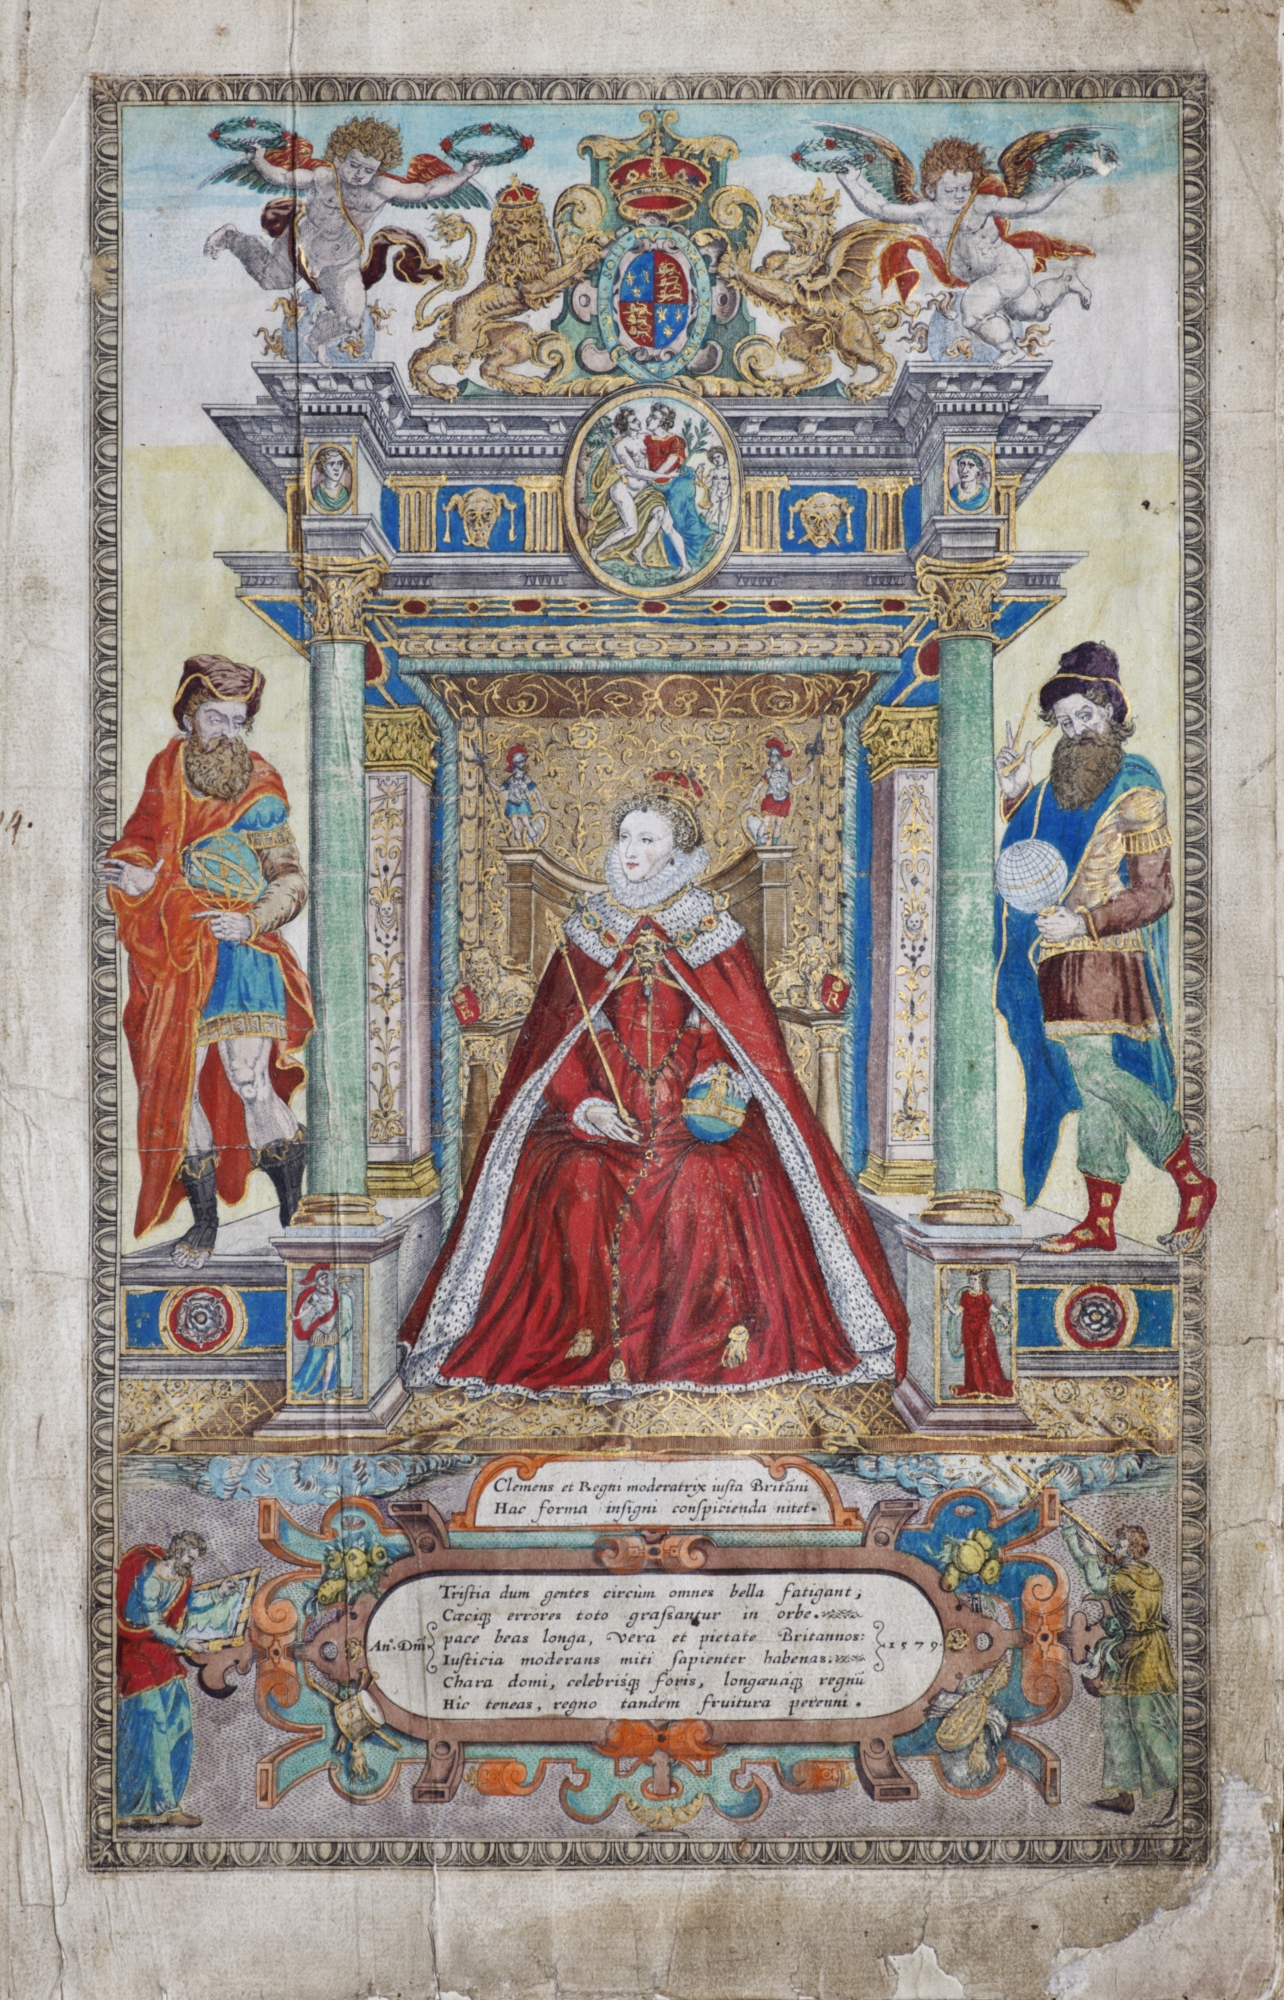 E
R
Clemens et Regni moderatrix iusta Britãni
Hac forma insigni conspicienda nitet.
Tristia dum gentes circùm omnes bella fatigant;
Cæciqꝫ errores toto grassantur in orbe.
An͂o. Dnĩ pace beas longa, Vera et pietate Britannos: 1579.
Iusticia moderans miti sapienter habenas.
Chara domi, celebrisqꝫ foris, longævaqꝫ regnũ
Hîc teneas, regno tandem fruitura perenni.